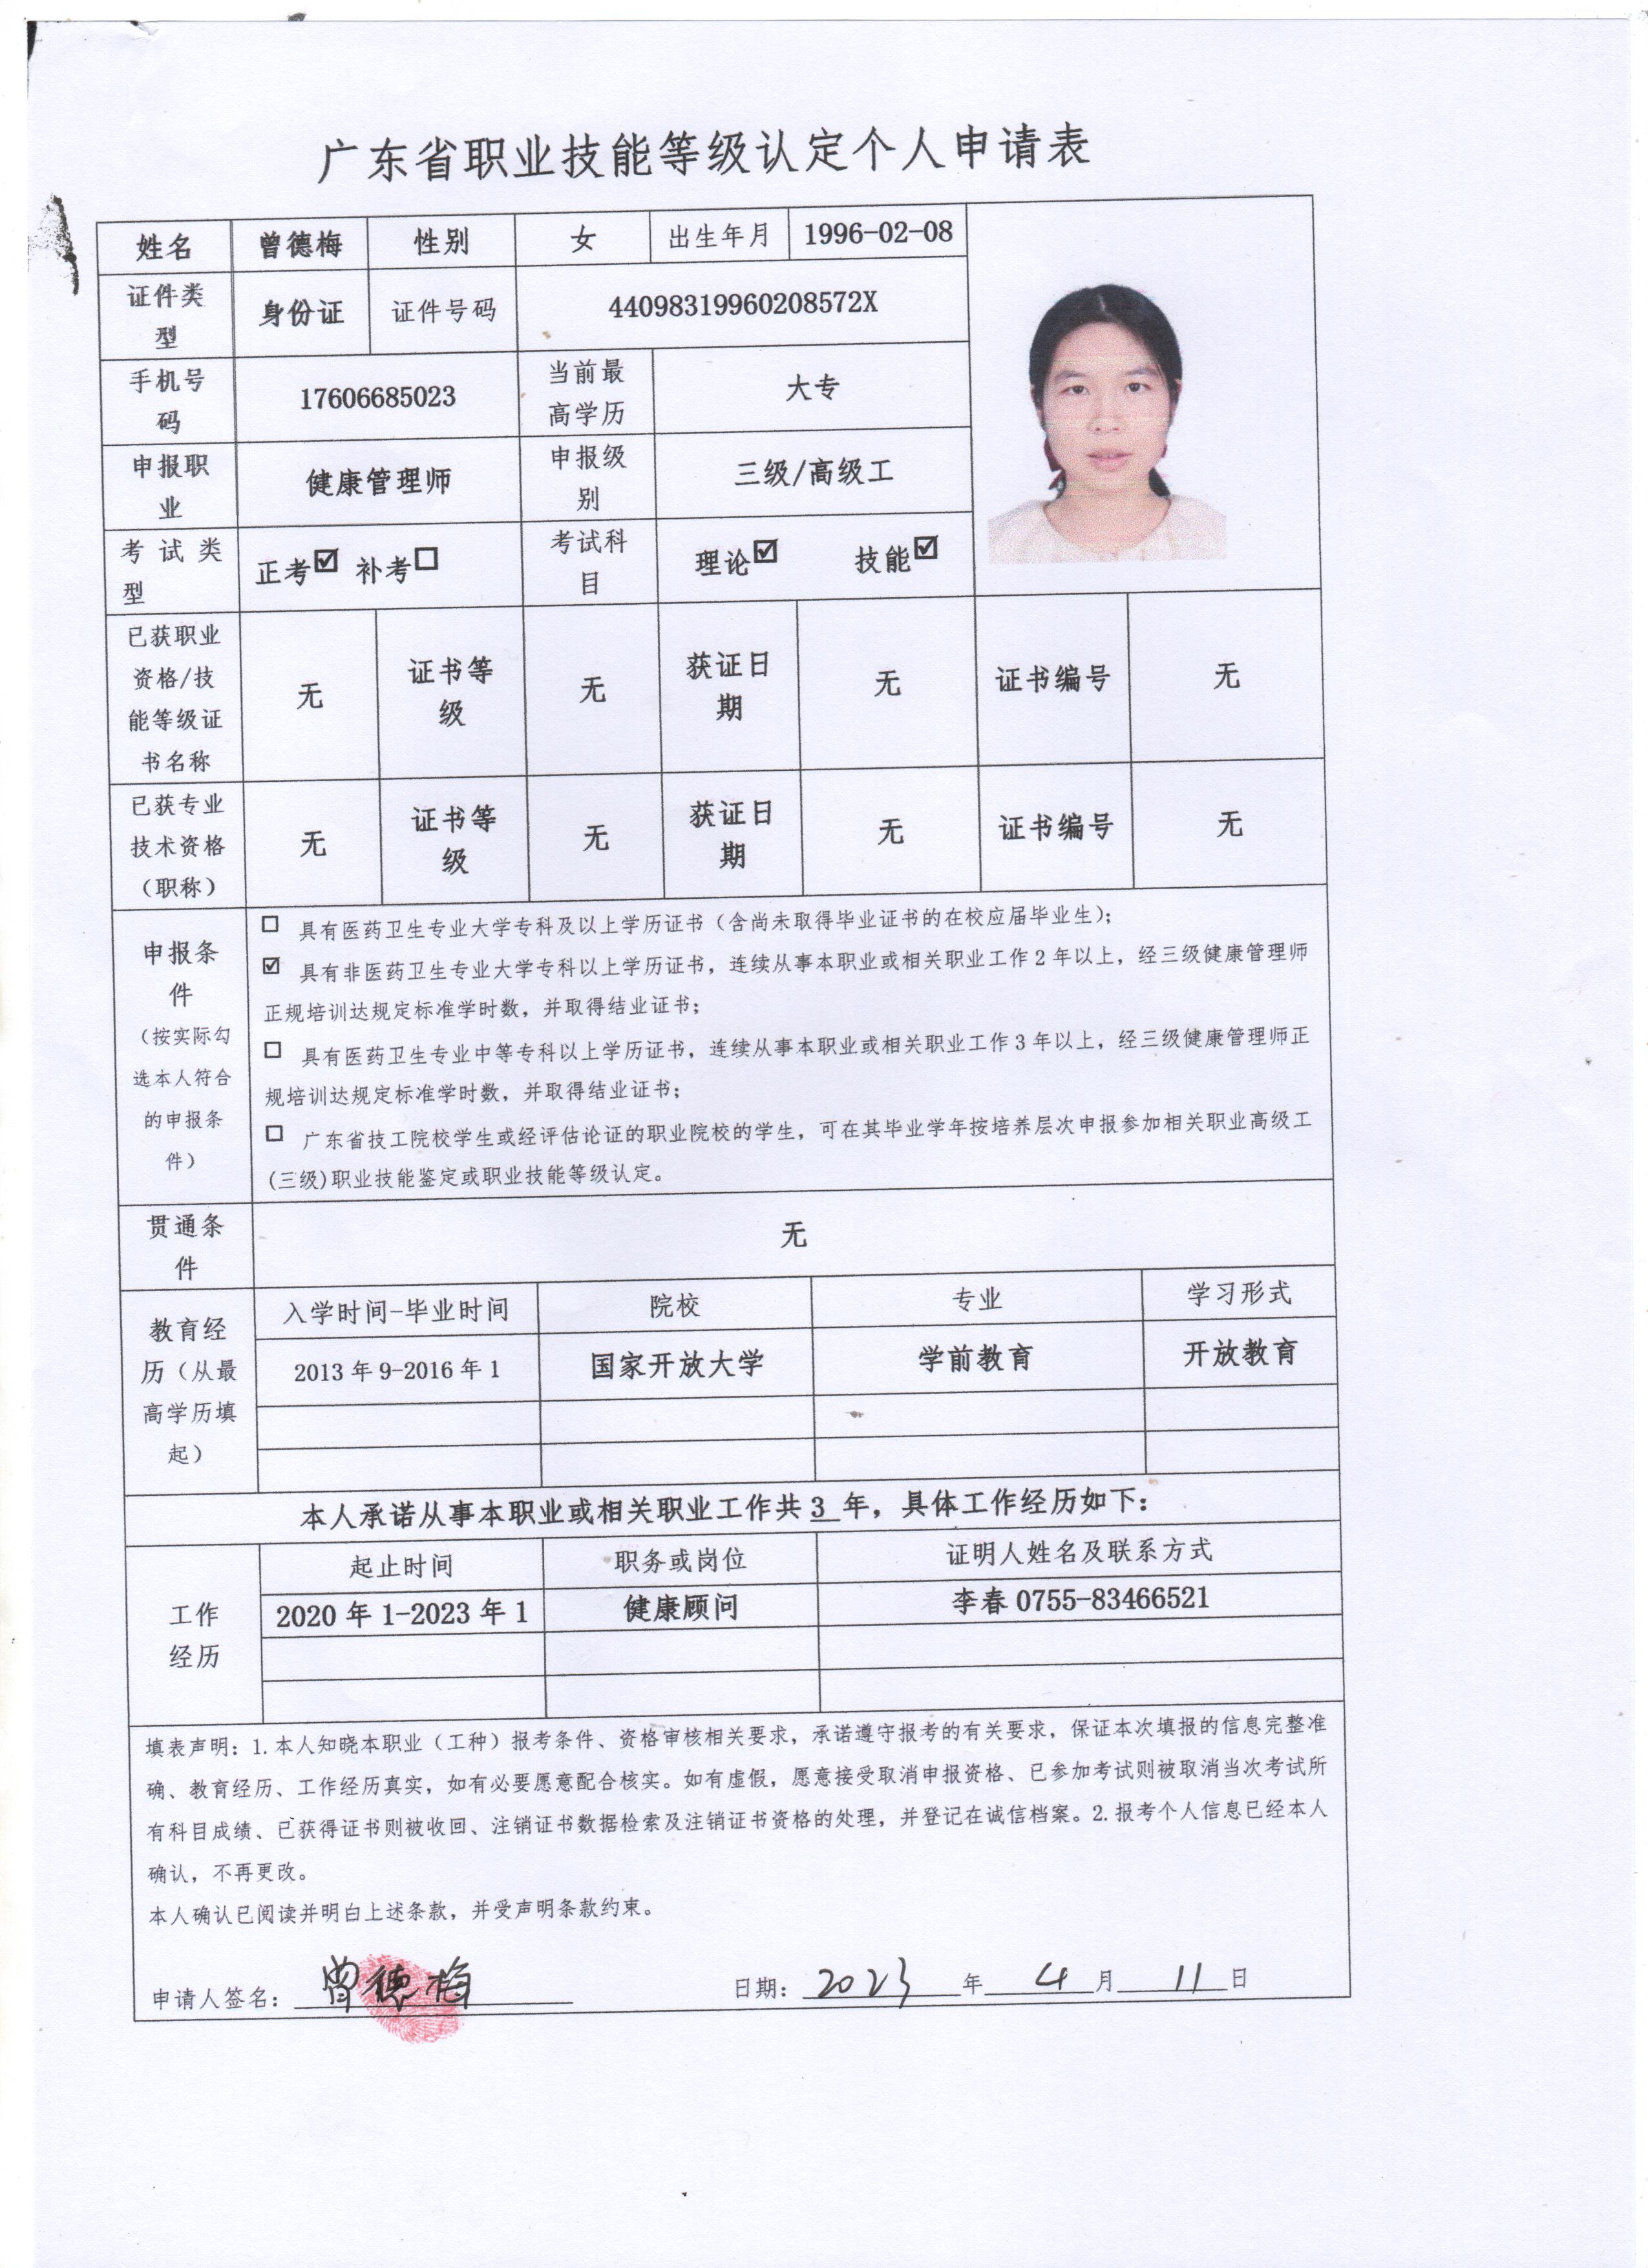 广东省职业技能等级认定个人申请表
姓名 曾德梅 性别 女 出生年月 1996-02-08
证件类型 身份证 证件号码 44098319960208572X
手机号码 17606685023 当前最高学历 大专
申报职业 健康管理师 申报级别 三级/高级工
考试类型 正考☑ 补考☐ 考试科目 理论☑ 技能☑
已获职业资格/技能等级证书名称 无 证书等级 无 获证日期 无 证书编号 无
已获专业技术资格（职称） 无 证书等级 无 获证日期 无 证书编号 无
申报条件（按实际勾选本人符合的申报条件）
☐ 具有医药卫生专业大学专科及以上学历证书（含尚未取得毕业证书的在校应届毕业生）；
☑ 具有非医药卫生专业大学专科以上学历证书，连续从事本职业或相关职业工作2年以上，经三级健康管理师
正规培训达规定标准学时数，并取得结业证书；
☐ 具有医药卫生专业中等专科以上学历证书，连续从事本职业或相关职业工作3年以上，经三级健康管理师正
规培训达规定标准学时数，并取得结业证书；
☐ 广东省技工院校学生或经评估论证的职业院校的学生，可在其毕业学年按培养层次申报参加相关职业高级工
(三级)职业技能鉴定或职业技能等级认定。
贯通条件 无
教育经历（从最高学历填起）
入学时间-毕业时间 院校 专业 学习形式
2013年9-2016年1 国家开放大学 学前教育 开放教育
本人承诺从事本职业或相关职业工作共 3 年，具体工作经历如下：
工作经历
起止时间 职务或岗位 证明人姓名及联系方式
2020年1-2023年1 健康顾问 李春 0755-83466521
填表声明：1.本人知晓本职业（工种）报考条件、资格审核相关要求，承诺遵守报考的有关要求，保证本次填报的信息完整准
确、教育经历、工作经历真实，如有必要愿意配合核实。如有虚假，愿意接受取消申报资格、已参加考试则被取消当次考试所
有科目成绩、已获得证书则被收回、注销证书数据检索及注销证书资格的处理，并登记在诚信档案。2.报考个人信息已经本人
确认，不再更改。
本人确认已阅读并明白上述条款，并受声明条款约束。
申请人签名： 曾德梅 日期： 2023 年 4 月 11 日